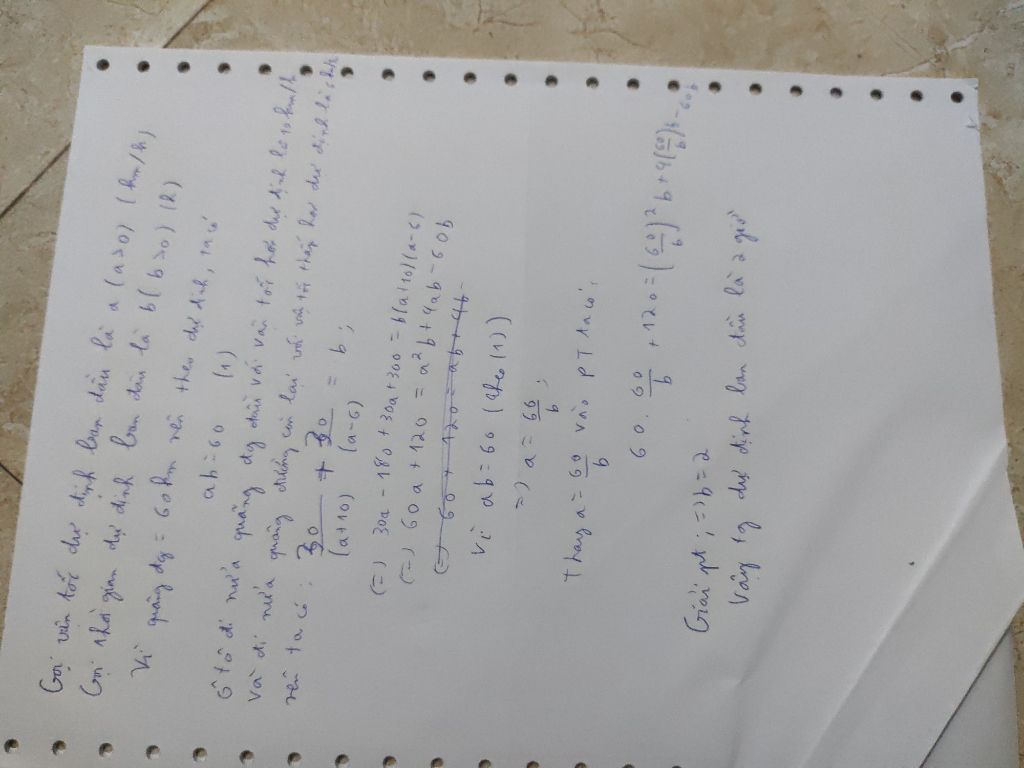 Gọi vận tốc dự định ban đầu là a (a>0) (km/h)
Gọi thời gian dự định ban đầu là b (b>0) (h)
Vì quãng đg = 60km nên theo dự định, ta có
ab=60 (1)
Ô tô đi nửa quãng đg đầu với vận tốc hơn dự định là 10km/h
và đi nửa quãng đường còn lại với vận tốc thấp hơn dự định là 6km/h
nên ta có: 30/(a+10) + 30/(a-6) = b;
(=) 30a - 180 + 30a + 300 = b(a+10)(a-6)
(=) 60a + 120 = a²b + 4ab - 60b
(=) 60 + 120 = ab + 4b
Vì ab=60 (theo (1))
=) a = 60/b;
Thay a = 60/b vào PT ta có:
60 . 60/b + 120 = (60/b)²b + 4(60/b)b - 60b
Giải pt; =) b=2
Vậy tg dự định ban đầu là 2 giờ